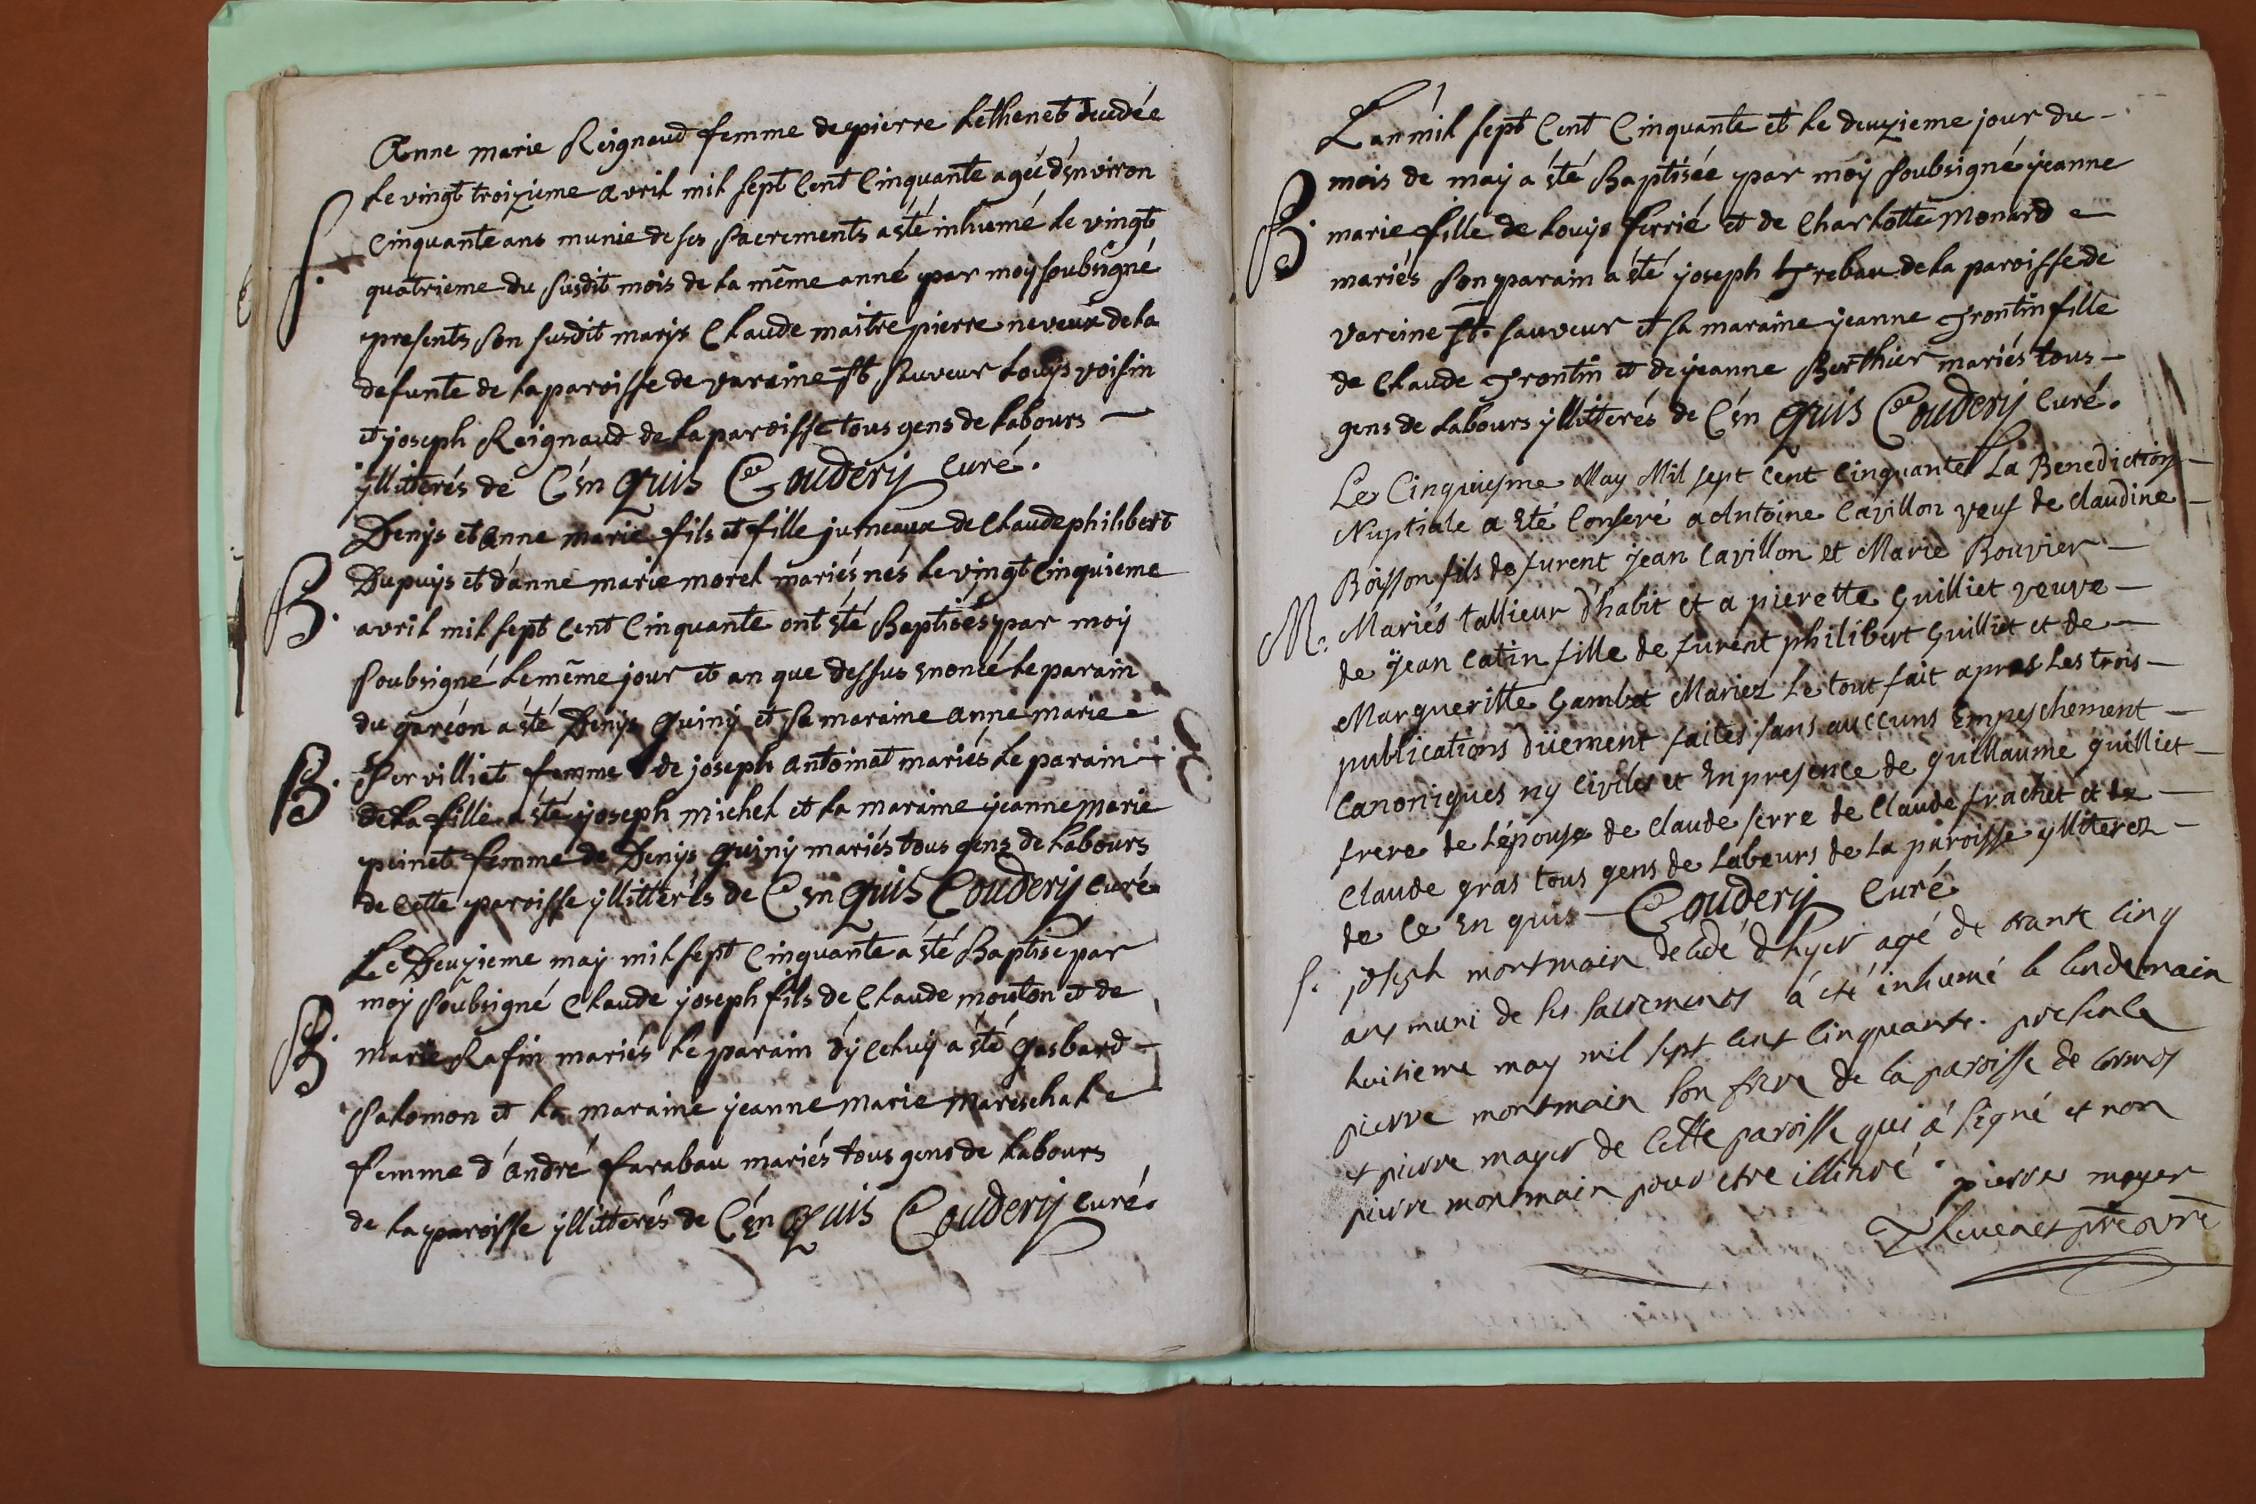 Anne marie Reignaud femme de pierre Lethenet decedée
S.
le vingt troizieme avril mil sept cent cinquante agée d'environ
cinquante ans munie de ses sacrements a esté inhumé le vingt
quatrieme du susdit mois de la même anné par moy soubsigné
presents son susdit marys Claude maitre pierre neveux de la
defunte de la paroisse de varaine st sauveur Louys voisin
et joseph Reignaud de la paroisse tous gens de labours
yllitterés de C'en Quis Couderij curé.
Denys et Anne marie fils et fille jumeaux de Claude philibert
B.
Dupuys et d'anne marie morel mariés nés le vingt cinquieme
avril mil sept cent cinquante ont été Baptisés par moy
soubsigné le même jour et an que dessus enoncé le parain
du garcon a été Denys Guiny et sa maraine anne marie
B.
Servilliet femme de joseph Antoinat mariés le parain
de la fille a été joseph michel et la maraine jeanne marie
peinet femme de Denys Guiny mariés tous gens de labours
de cette paroisse yllitterés de C'en Quis Couderij curé
Le Deuzieme may mil sept cinquante a été Baptisé par
B.
moy soubsigné Claude joseph fils de Claude mouton et de
marie Rafin mariés le parain d'yceluy a été Gasbard
Salomon et la maraine jeanne marie Mareschal
femme d'André farabau mariés tous gens de labours
de la paroisse yllitterés de C'en Quis Couderij curé.
L'an mil sept cent cinquante et le deuzieme jour du
B.
mois de may a été Baptisée par moy soubsigné jeanne
marie fille de Louys ferrié et de Charlotte Monard
mariés son parain a été joseph Grebau de la paroisse de
vareine st. sauveur et sa maraine jeanne Grontin fille
de Claude Grontin et de jeanne Berthier mariés tous
gens de labours yllitterés de C'en Quis Couderij curé.
Le Cinquiesme May Mil sept cent cinquante La Benediction
Nuptiale a eté conferé a Antoine Cavillon veuf de claudine
Boisson fils de furent jean Cavillon et Marie Bouvier
M.
Mariés tallieur d'habit et a pierette Guilliet veuve
de jean Catin fille de furent philibert Guilliet et de
Margueritte Gambet Mariez le tout fait apres les trois
publications düement faites sans auccuns Empeschement
Canoniques ny Civiles et En presence de guillaume guilliet
frere de l'épouse de claude serre de claude frachet et de
claude gras tous gens de labeurs de la paroisse ylliterez
de ce en quis Couderij curé
S.
joseph montmain decedé d'hyer agé de trante cinq
ans muni de ses sacrements a été inhumé le lendemain
huitieme may mil sept cent cinquante. presence
pierre montmain son frere de la paroisse de cormos
et pierre mayer de cette paroisse qui a signé et non
pierre montmain pour etre illitéré pierre mayer
Thevenet pre vre